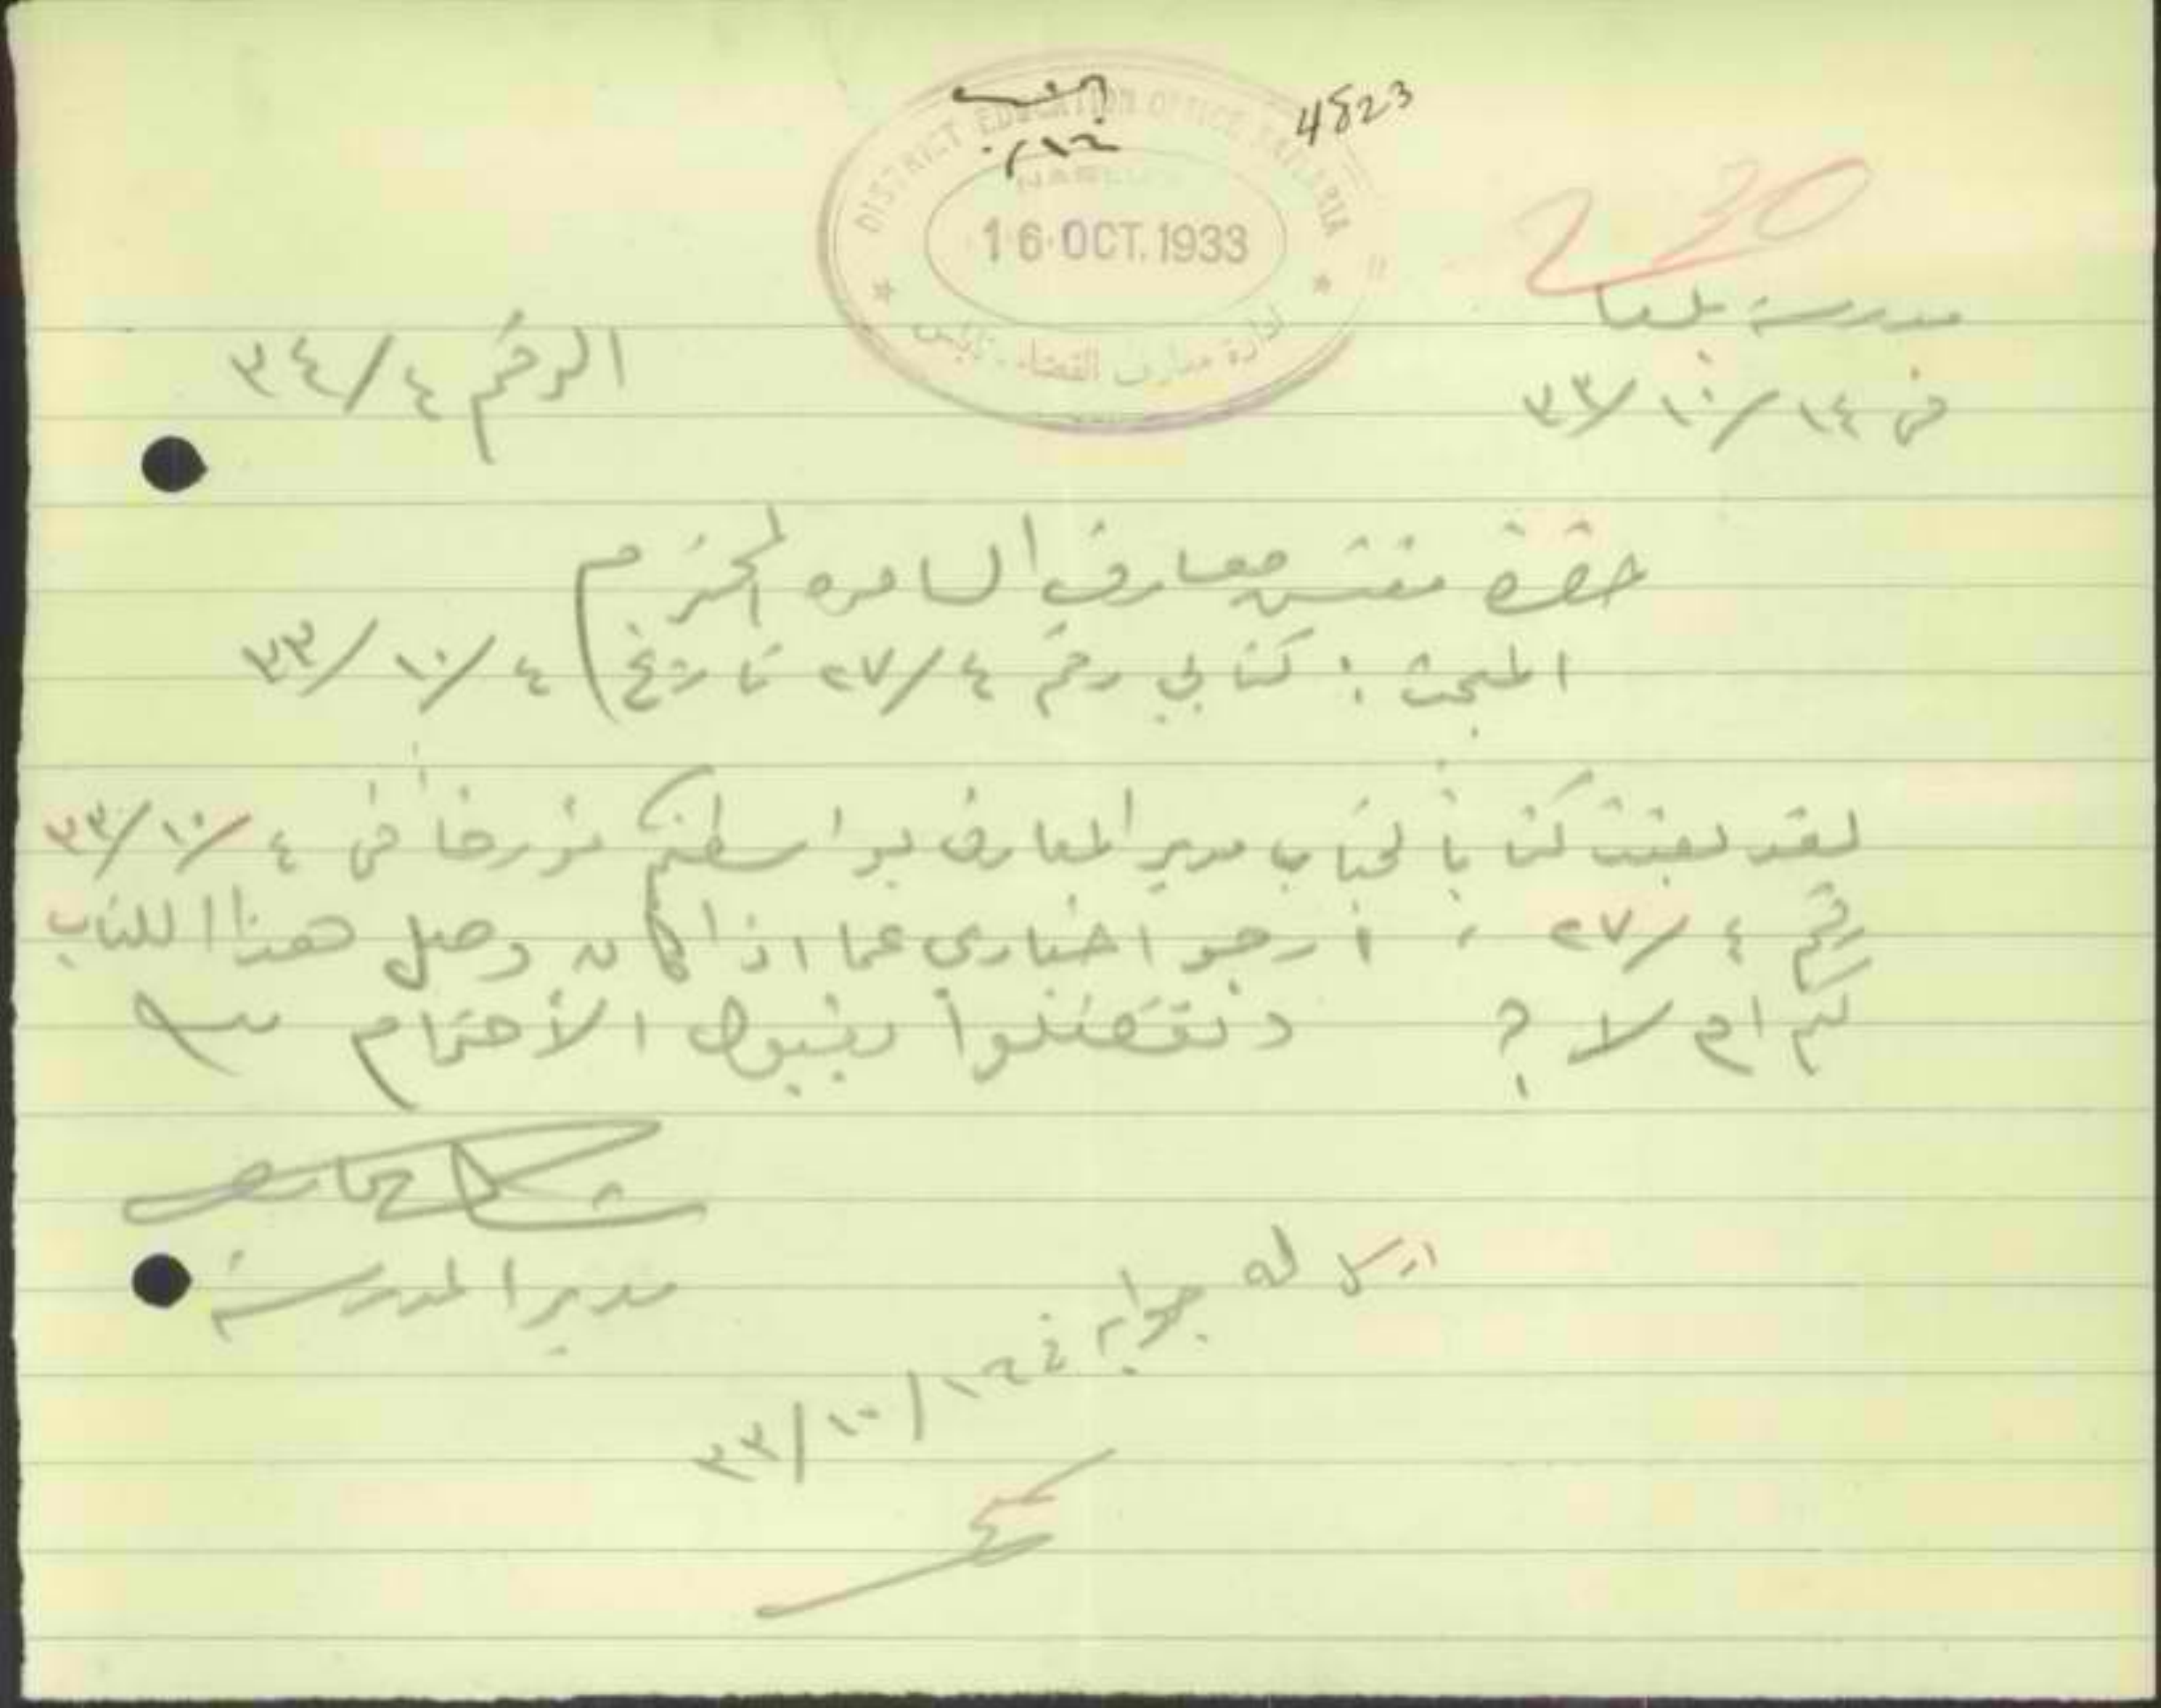 4823
DISTRICT EDUCATION OFFICE SAMARIA
NABLUS
16 OCT. 1933
ادارة معارف القضاء - نابلس
30
مدرسة بلعا
في ١٤/١٠/٣٣
الرقم ٣٤/٤
حضرة مفتش معارف السامره المحترم
المبحث : كتابي رقم ٢٧/٤ تاريخ ٤/١٠/٣٣
لقد بعثت كتابا لجناب مدير المعارف بواسطتكم مؤرخا في ٤/١٠/٣٣
رقم ٢٧/٤ ، أرجو اخباري عما اذا كان وصل هذا الكتاب
لكم ام لا ؟ وتفضلوا بقبول الأحترام
مدير المدرسة
ارسل له جواب في ١٦/١٠/٣٣